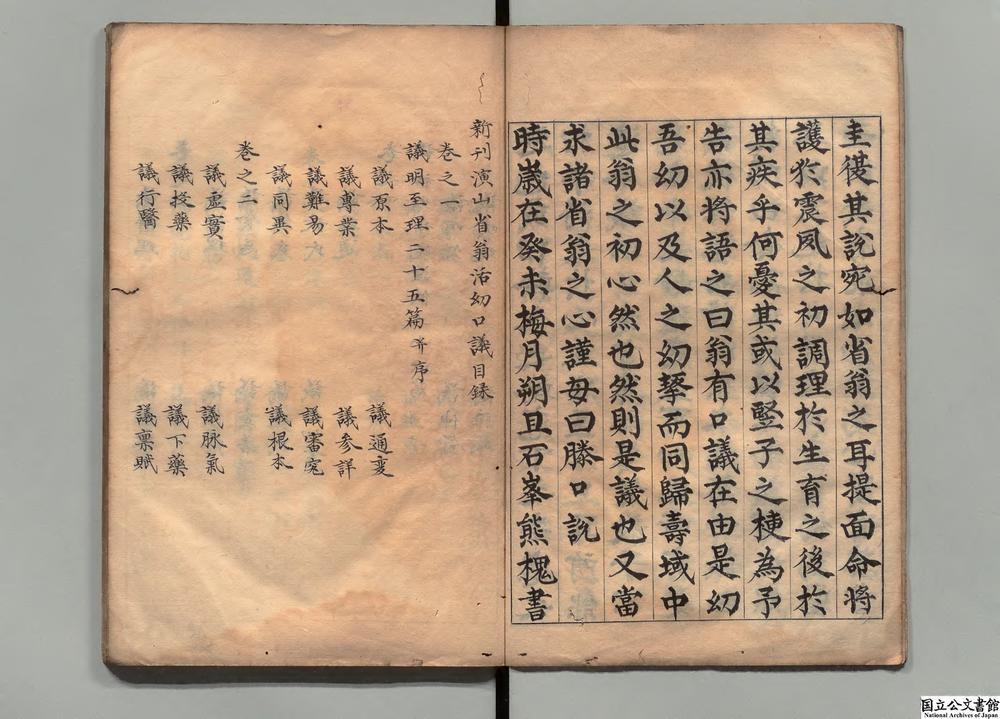 圭復其說宛如省翁之耳提面命將
護於震夙之初調理於生育之後於
其疾乎何憂其或以竪子之梗為予
告亦將語之曰翁有口議在由是幼
吾幼以及人之幼挈而同歸壽域中
此翁之初心然也然則是議也又當
求諸省翁之心謹毋曰滕口說
時歲在癸未梅月朔旦石峯熊槐書
新刊演山省翁活幼口議目録
卷之一
議明至理二十五篇并序
議原本 議通變
議專業 議參詳
議難易 議審究
議同異 議根本
卷之二
議虛實 議脉氣
議投藥 議下藥
議行醫 議禀賦
国立公文書館
National Archives of Japan